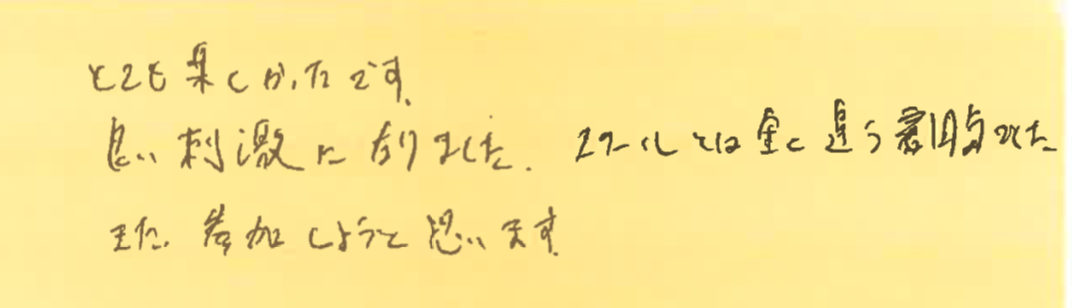 とても楽しかったです。
良い刺激になりました. スクールとは全く違う雰囲気でした
また、参加しようと思います。